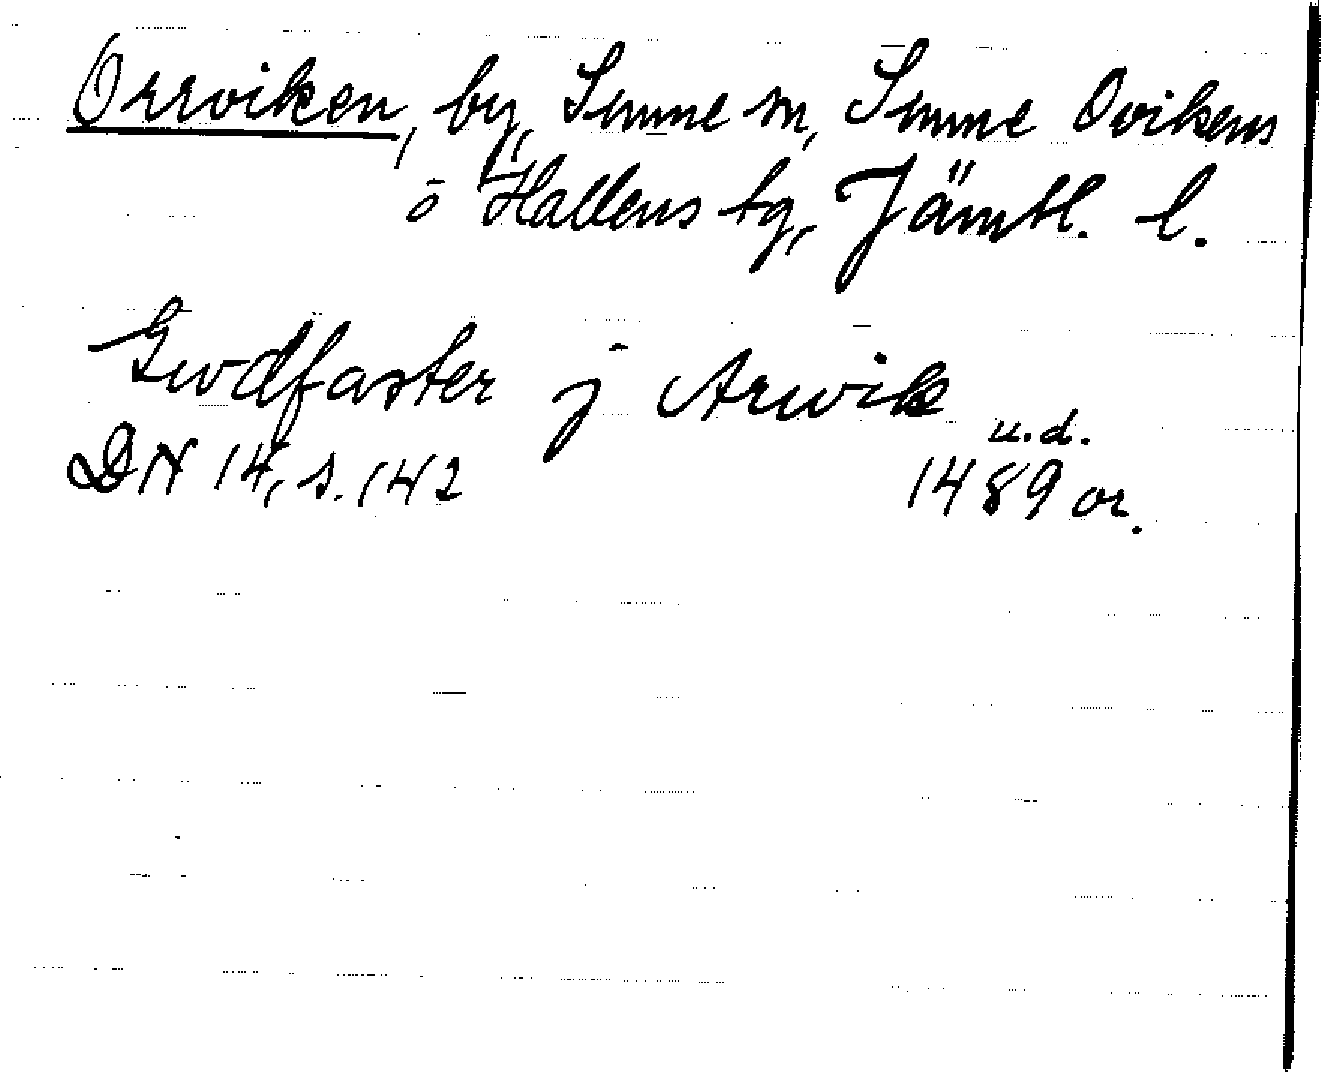 Orrviken, by, Sunne sn, Sunne Ovikens
o Hallens tg, Jämtl. l.
Gwdfaster j Arwik
u.d.
DN 14, s. 142 1489 or.